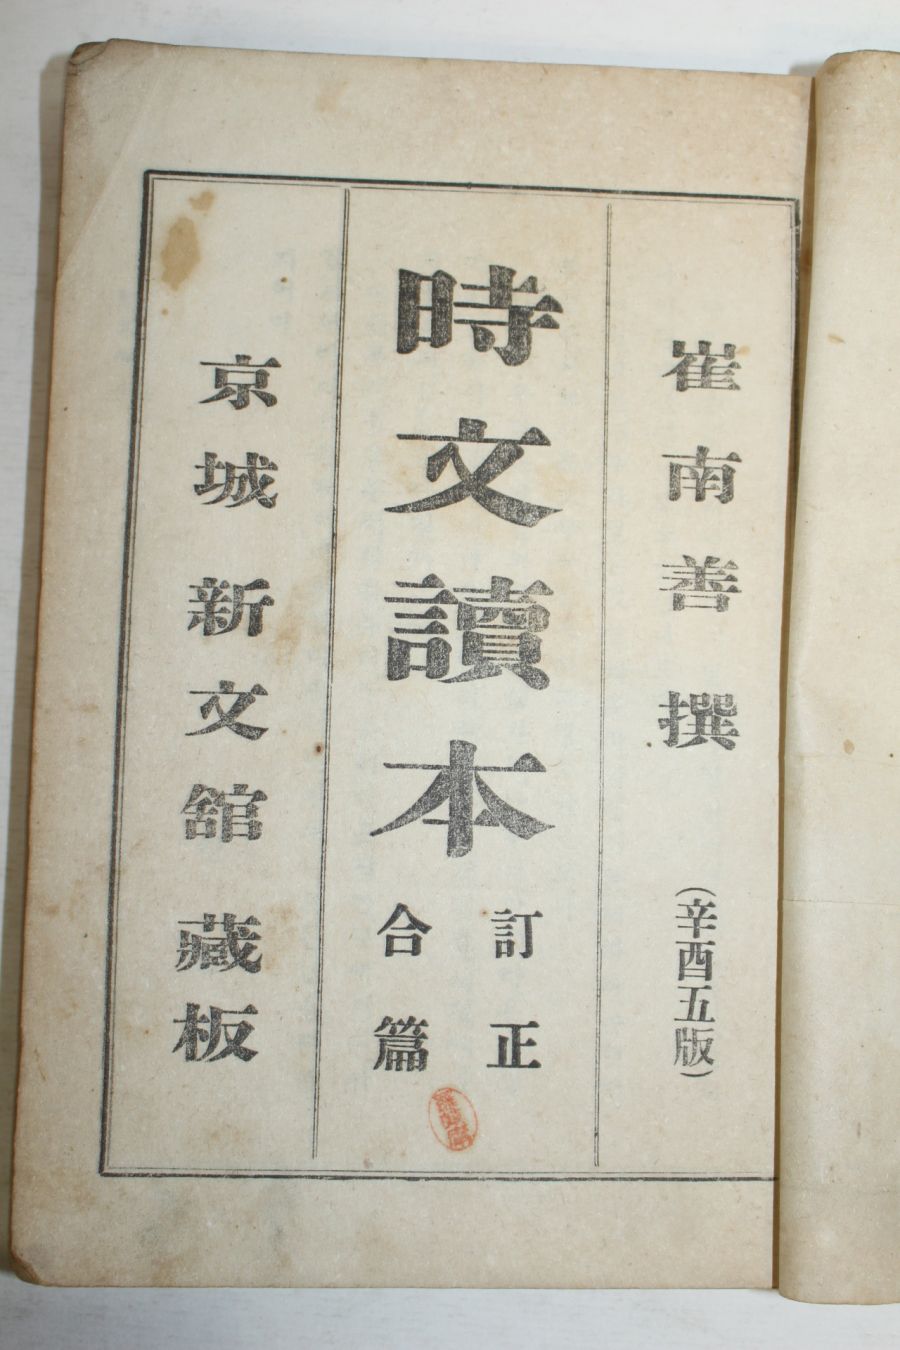 崔南善撰
(辛酉五版)
時文讀本
訂正
合篇
京城新文舘藏板